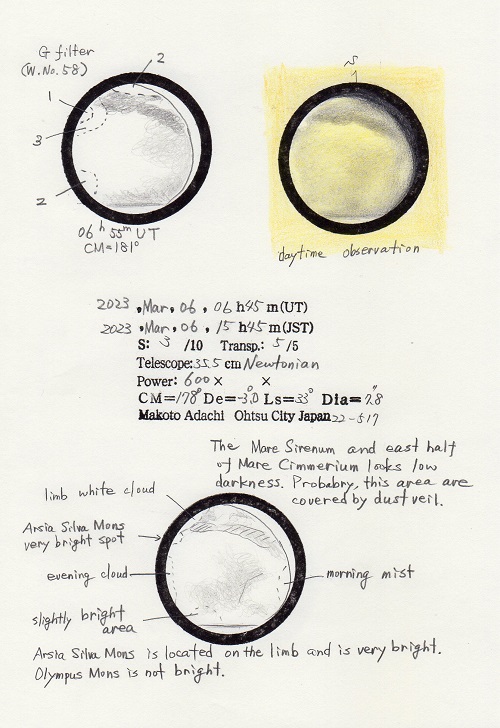 G filter
(W.No.58)
2
1
3
2
06h 55m UT
CM=181°
S
daytime observation
2023 , Mar, 06 , 06 h 45 m (UT)
2023 , Mar, 06 , 15 h 45 m (JST)
S: 3 /10 Transp.: 5 /5
Telescope: 35.5 cm Newtonian
Power: 600 × ×
CM=178° De=-3.0° Ls=33° Dia=7.8"
Makoto Adachi Ohtsu City Japan 22-517
The Mare Sirenum and east half
of Mare Cimmerium looks low
darkness. Probabry, this area are
covered by dust veil.
limb white cloud
Arsia Silva Mons
very bright spot
evening cloud
morning mist
slightly bright
area
Arsia Silva Mons is located on the limb and is very bright.
Olympus Mons is not bright.